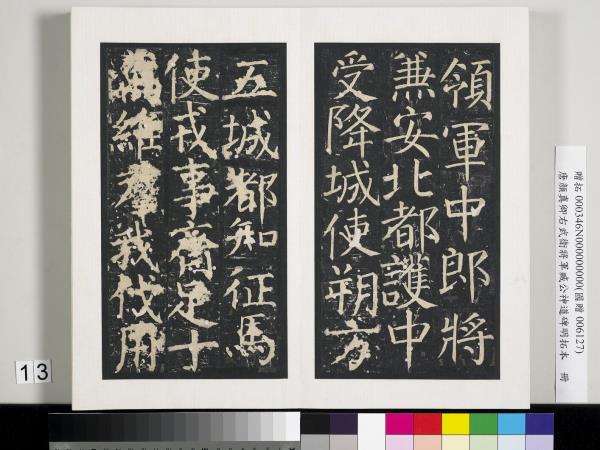 領軍中郎將
兼安北都護中
受降城使朔方
五城都知征馬
使戎事齊足十
維羣我伐用
贈拓 000346N000000000(國贈 006127)
唐顏真卿右武衛將軍臧公神道碑明拓本 冊
13